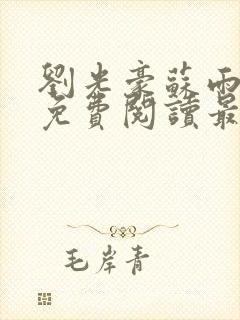 劉光豪蘇雨
免費閱讀最
毛岸青